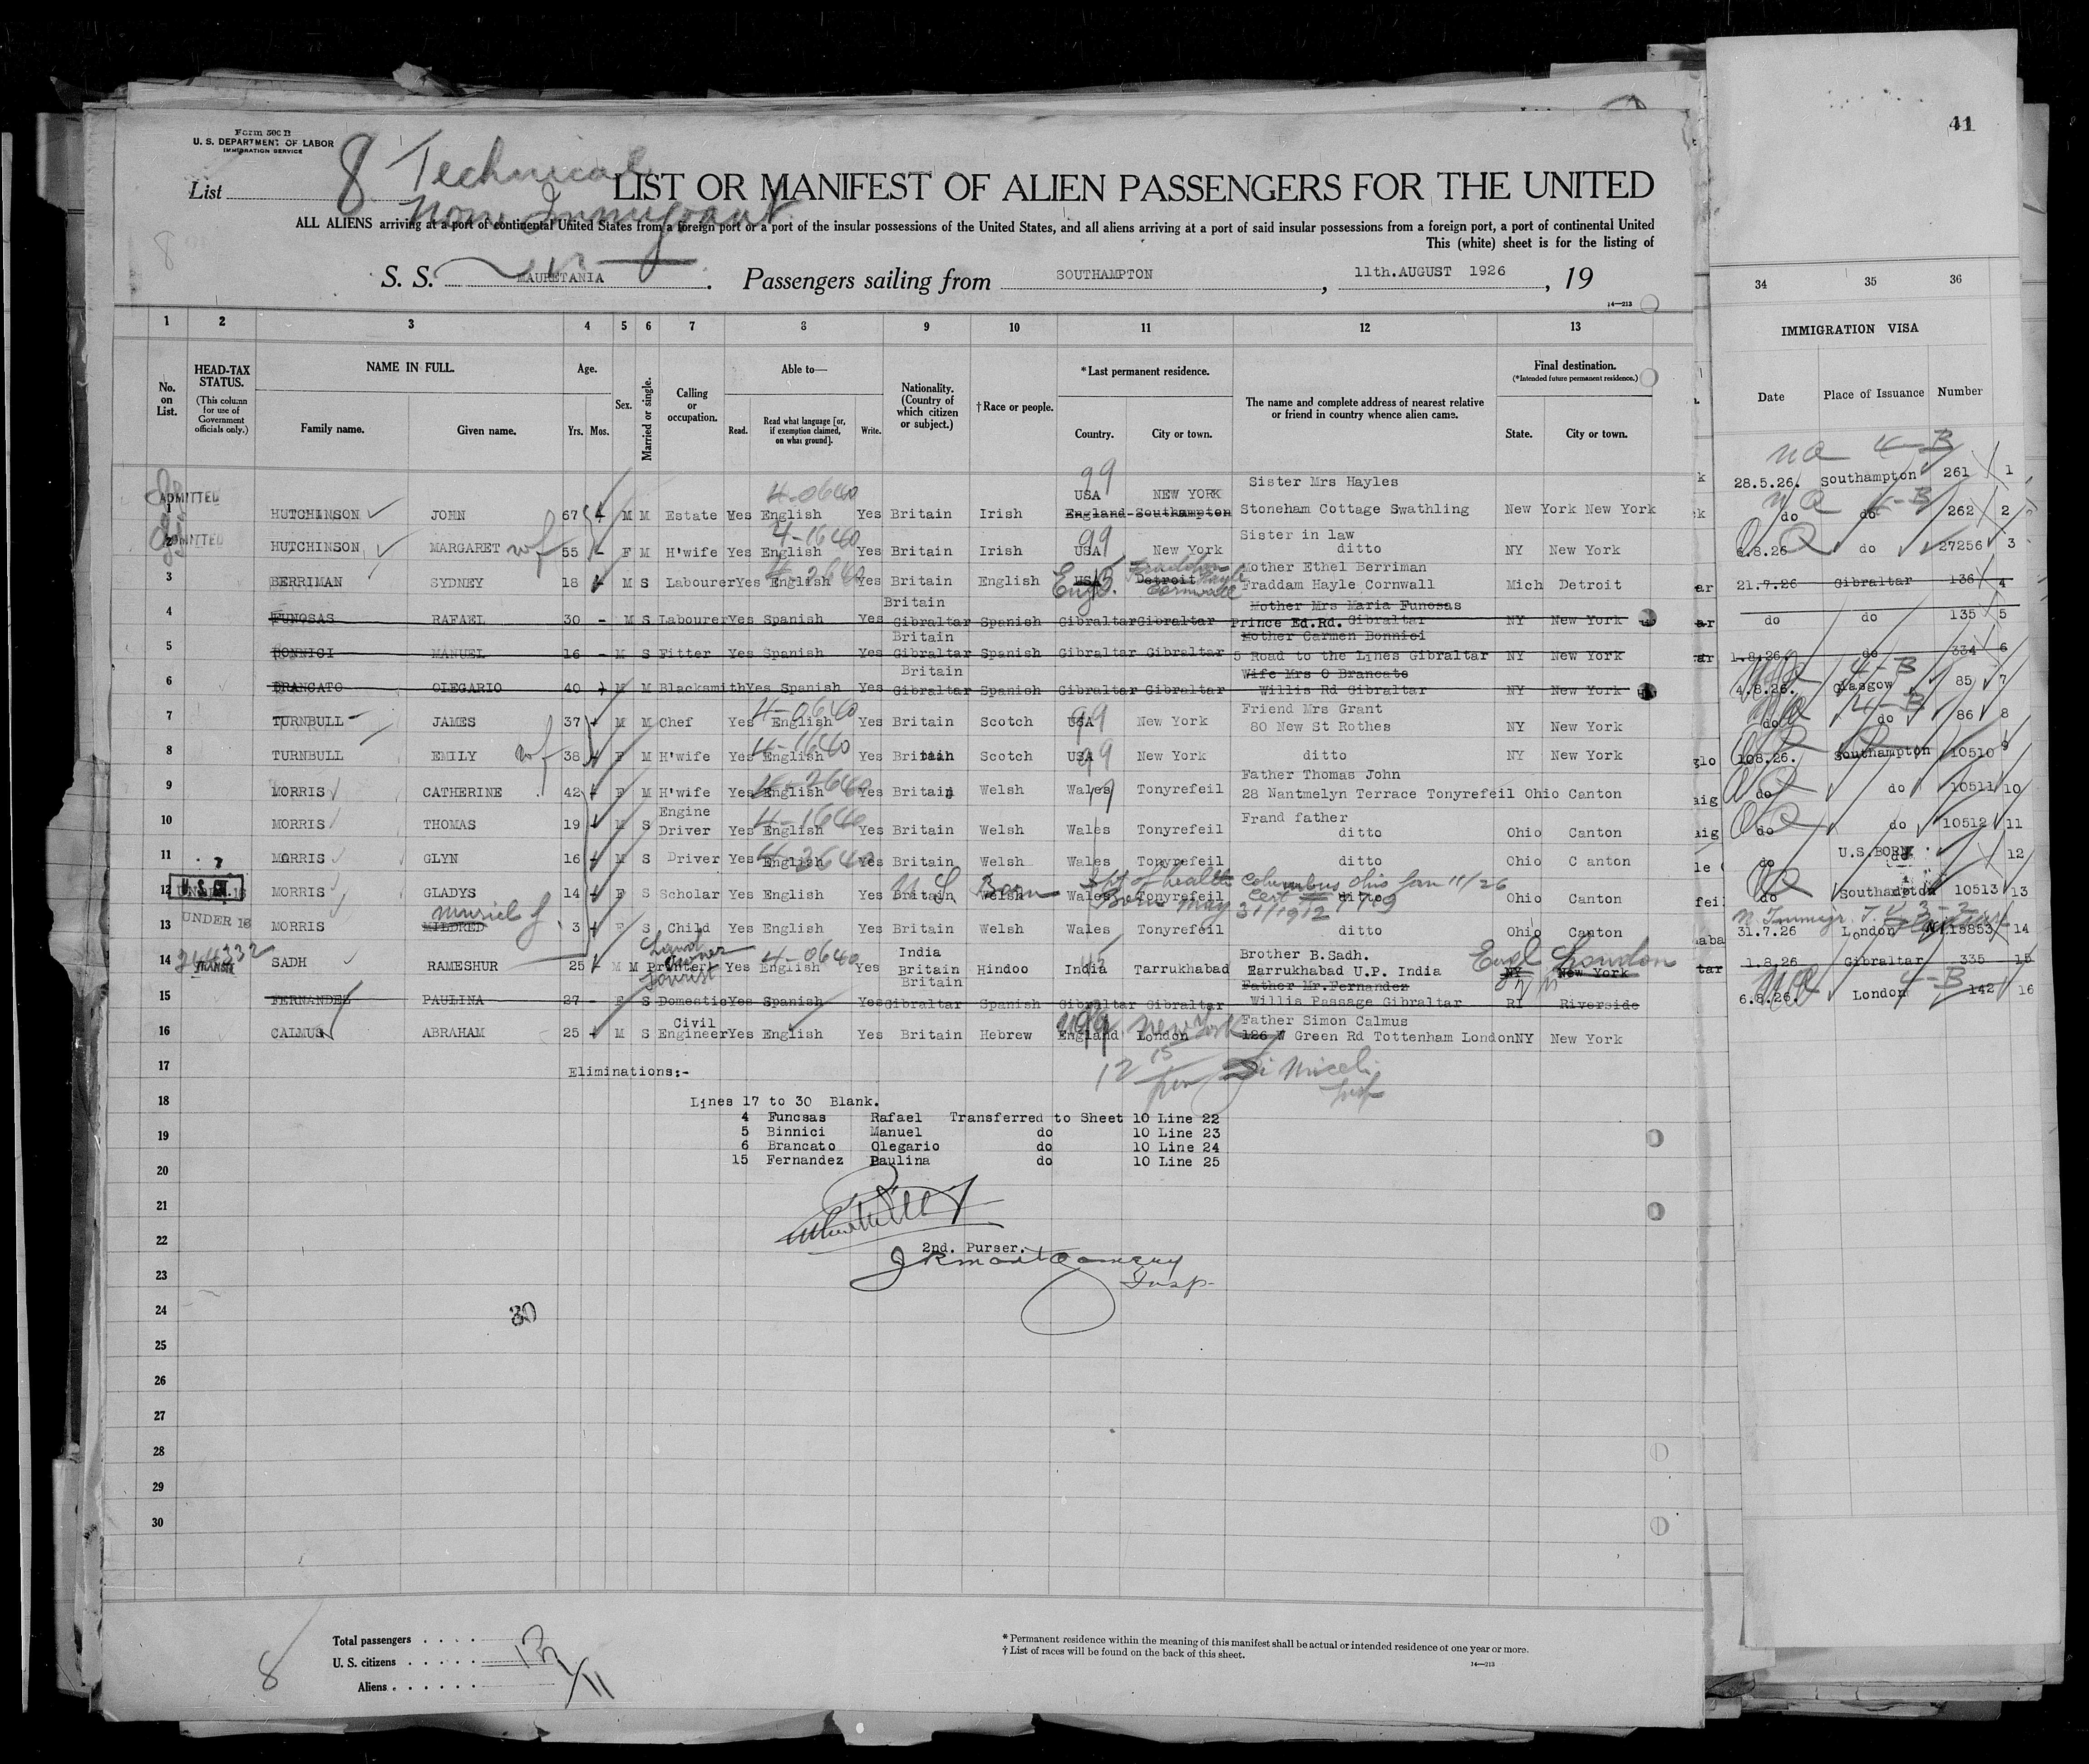 41
Form 500 B
U. S. DEPARTMENT OF LABOR
IMMIGRATION SERVICE
8 Technical
List
LIST OR MANIFEST OF ALIEN PASSENGERS FOR THE UNITED
Non Immigrant
ALL ALIENS arriving at a port of continental United States from a foreign port or a port of the insular possessions of the United States, and all aliens arriving at a port of said insular possessions from a foreign port, a port of continental United
This (white) sheet is for the listing of
8
S. S. MAURETANIA. Passengers sailing from SOUTHAMPTON, 11th.AUGUST 1926, 19
14—213
1 2 3 4 5 6 7 8 9 10 11 12 13 34 35 36
No. on List.
HEAD-TAX STATUS.
(This column for use of Government officials only.)
NAME IN FULL.
Family name. Given name.
Age.
Yrs. Mos.
Sex.
Married or single.
Calling or occupation.
Able to—
Read. Read what language [or, if exemption claimed, on what ground]. Write.
Nationality. (Country of which citizen or subject.)
† Race or people.
*Last permanent residence.
Country. City or town.
The name and complete address of nearest relative or friend in country whence alien came.
Final destination.
(*Intended future permanent residence.)
State. City or town.
IMMIGRATION VISA
Date Place of Issuance Number
99 Sister Mrs Hayles NQ 4-B
ADMITTED 4-0640 USA NEW YORK 28.5.26. Southampton 261 1
1 HUTCHINSON JOHN 67 - M M Estate Yes English Yes Britain Irish England-Southampton Stoneham Cottage Swathling New York New York
do do 262 2
ADMITTED 4-1640 99 Sister in law
2 HUTCHINSON MARGARET wf 55 - F M H'wife Yes English Yes Britain Irish USA New York ditto NY New York
6.8.26 do 27256 3
Mother Ethel Berriman
3 BERRIMAN SYDNEY 18 M S Labourer Yes English Yes Britain English USA Engl. Detroit Fraddam Hayle Cornwall Fraddam Hayle Cornwall Mich Detroit
21.7.26 Gibraltar 136 4
Britain Mother Mrs Maria Funosas
4 FUNOSAS RAFAEL 30 - M S Labourer Yes Spanish Yes Gibraltar Spanish Gibraltar Gibraltar Prince Ed.Rd. Gibraltar NY New York
do do 135 5
Britain Mother Carmen Bonnici
5 BONNICI MANUEL 16 - M S Fitter Yes Spanish Yes Gibraltar Spanish Gibraltar Gibraltar 5 Road to the Lines Gibraltar NY New York
1.8.26. do 334 6
Britain Wife Mrs O Brancato
6 BRANCATO OLEGARIO 40 M M Blacksmith Yes Spanish Yes Gibraltar Spanish Gibraltar Gibraltar Willis Rd Gibraltar NY New York
4.8.26. Glasgow 4-B 85 7
4-0640 Friend Mrs Grant
7 TURNBULL JAMES 37 M M Chef Yes English Yes Britain Scotch USA 99 New York 80 New St Rothes NY New York
do do 4-B 86 8
4-1640
8 TURNBULL EMILY wf 38 F M H'wife Yes English Yes Britain Scotch USA 99 New York ditto NY New York
108.26. Southampton 10510 9
Father Thomas John
9 MORRIS CATHERINE 42 F M H'wife Yes English Yes Britain Welsh Wales Tonyrefeil 28 Nantmelyn Terrace Tonyrefeil Ohio Canton
do do 10511 10
Engine 4-1640 Frand father
10 MORRIS THOMAS 19 M S Driver Yes English Yes Britain Welsh Wales Tonyrefeil ditto Ohio Canton
do do 10512 11
11 MORRIS GLYN 16 M S Driver Yes English Yes Britain Welsh Wales Tonyrefeil ditto Ohio C anton
do U.S.BORN 12
Dpt of health Columbus Ohio Jan 11/26
12 UNDER 16 MORRIS GLADYS 14 F S Scholar Yes English Yes Britain U S Born Welsh Wales Tonyrefeil ditto Ohio Canton
Born May 31/1912
do Southampton 10513 13
UNDER 16 Muriel
13 MORRIS MILDRED 3 F S Child Yes English Yes Britain Welsh Wales Tonyrefeil ditto Ohio Canton
31.7.26 London 15853 14
Land Owner Tourist 4-0640 India Brother B.Sadh. Engl London
14 TRANSIT SADH RAMESHUR 25 M M Printer Yes English Yes Britain Hindoo India Tarrukhabad Farrukhabad U.P. India NY New York
1.8.26 Gibraltar 335 15
Britain Father Mr.Fernandez
15 FERNANDEZ PAULINA 27 - F S Domestic Yes Spanish Yes Gibraltar Spanish Gibraltar Gibraltar Willis Passage Gibraltar RI Riverside
6.8.26. London 4-B 142 16
Civil New York Father Simon Calmus
16 CALMUS ABRAHAM 25 - M S Engineer Yes English Yes Britain Hebrew England London 126 W Green Rd Tottenham London NY New York
17 Eliminations:-
18 Lines 17 to 30 Blank.
4 Funosas Rafael Transferred to Sheet 10 Line 22
19 5 Binnici Manuel do 10 Line 23
6 Brancato Olegario do 10 Line 24
20 15 Fernandez Paulina do 10 Line 25
21
22 2nd. Purser.
J R Montgomery
23 Insp.
24 30
25
26
27
28
29
30
Total passengers 13
U. S. citizens
Aliens 11
8
* Permanent residence within the meaning of this manifest shall be actual or intended residence of one year or more.
† List of races will be found on the back of this sheet.
14—213